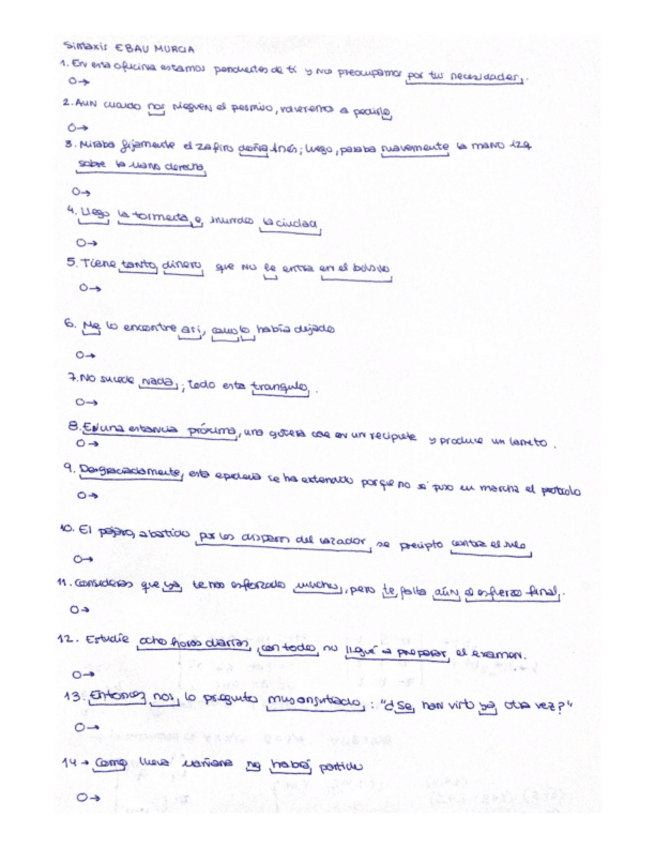 Sintaxis EBAU MURCIA
1. En esta oficina estamos pendientes de ti y nos preocupamos por tus necesidades.
O→
2. Aun cuando nos nieguen el permiso, volveremos a pedirlo
O→
3. Miraba fijamente el zafiro doña Inés; luego, pasaba suavemente la mano izq
sobre la mano derecha
O→
4. Llegó la tormenta e inundó la ciudad
O→
5. Tiene tanto dinero que no le entra en el bolsillo
O→
6. Me lo encontré así, como lo había dejado
O→
7. No sucede nada; todo está tranquilo.
O→
8. En una estancia próxima, una gotera cae en un recipiente y produce un lamento.
O→
9. Desgraciadamente, esta epidemia se ha extendido porque no se puso en marcha el protocolo
O→
10. El pájaro, abatido por los disparos del cazador, se precipitó contra el suelo
O→
11. Consideras que ya te has esforzado mucho, pero te falta aún el esfuerzo final.
O→
12. Estudié ocho horas diarias, con todo, no llegué a preparar el examen.
O→
13. Entonces nos lo preguntó muy angustiado: "¿Se han visto ya otra vez?"
O→
14 → Como llueva mañana no habrá partido
O→